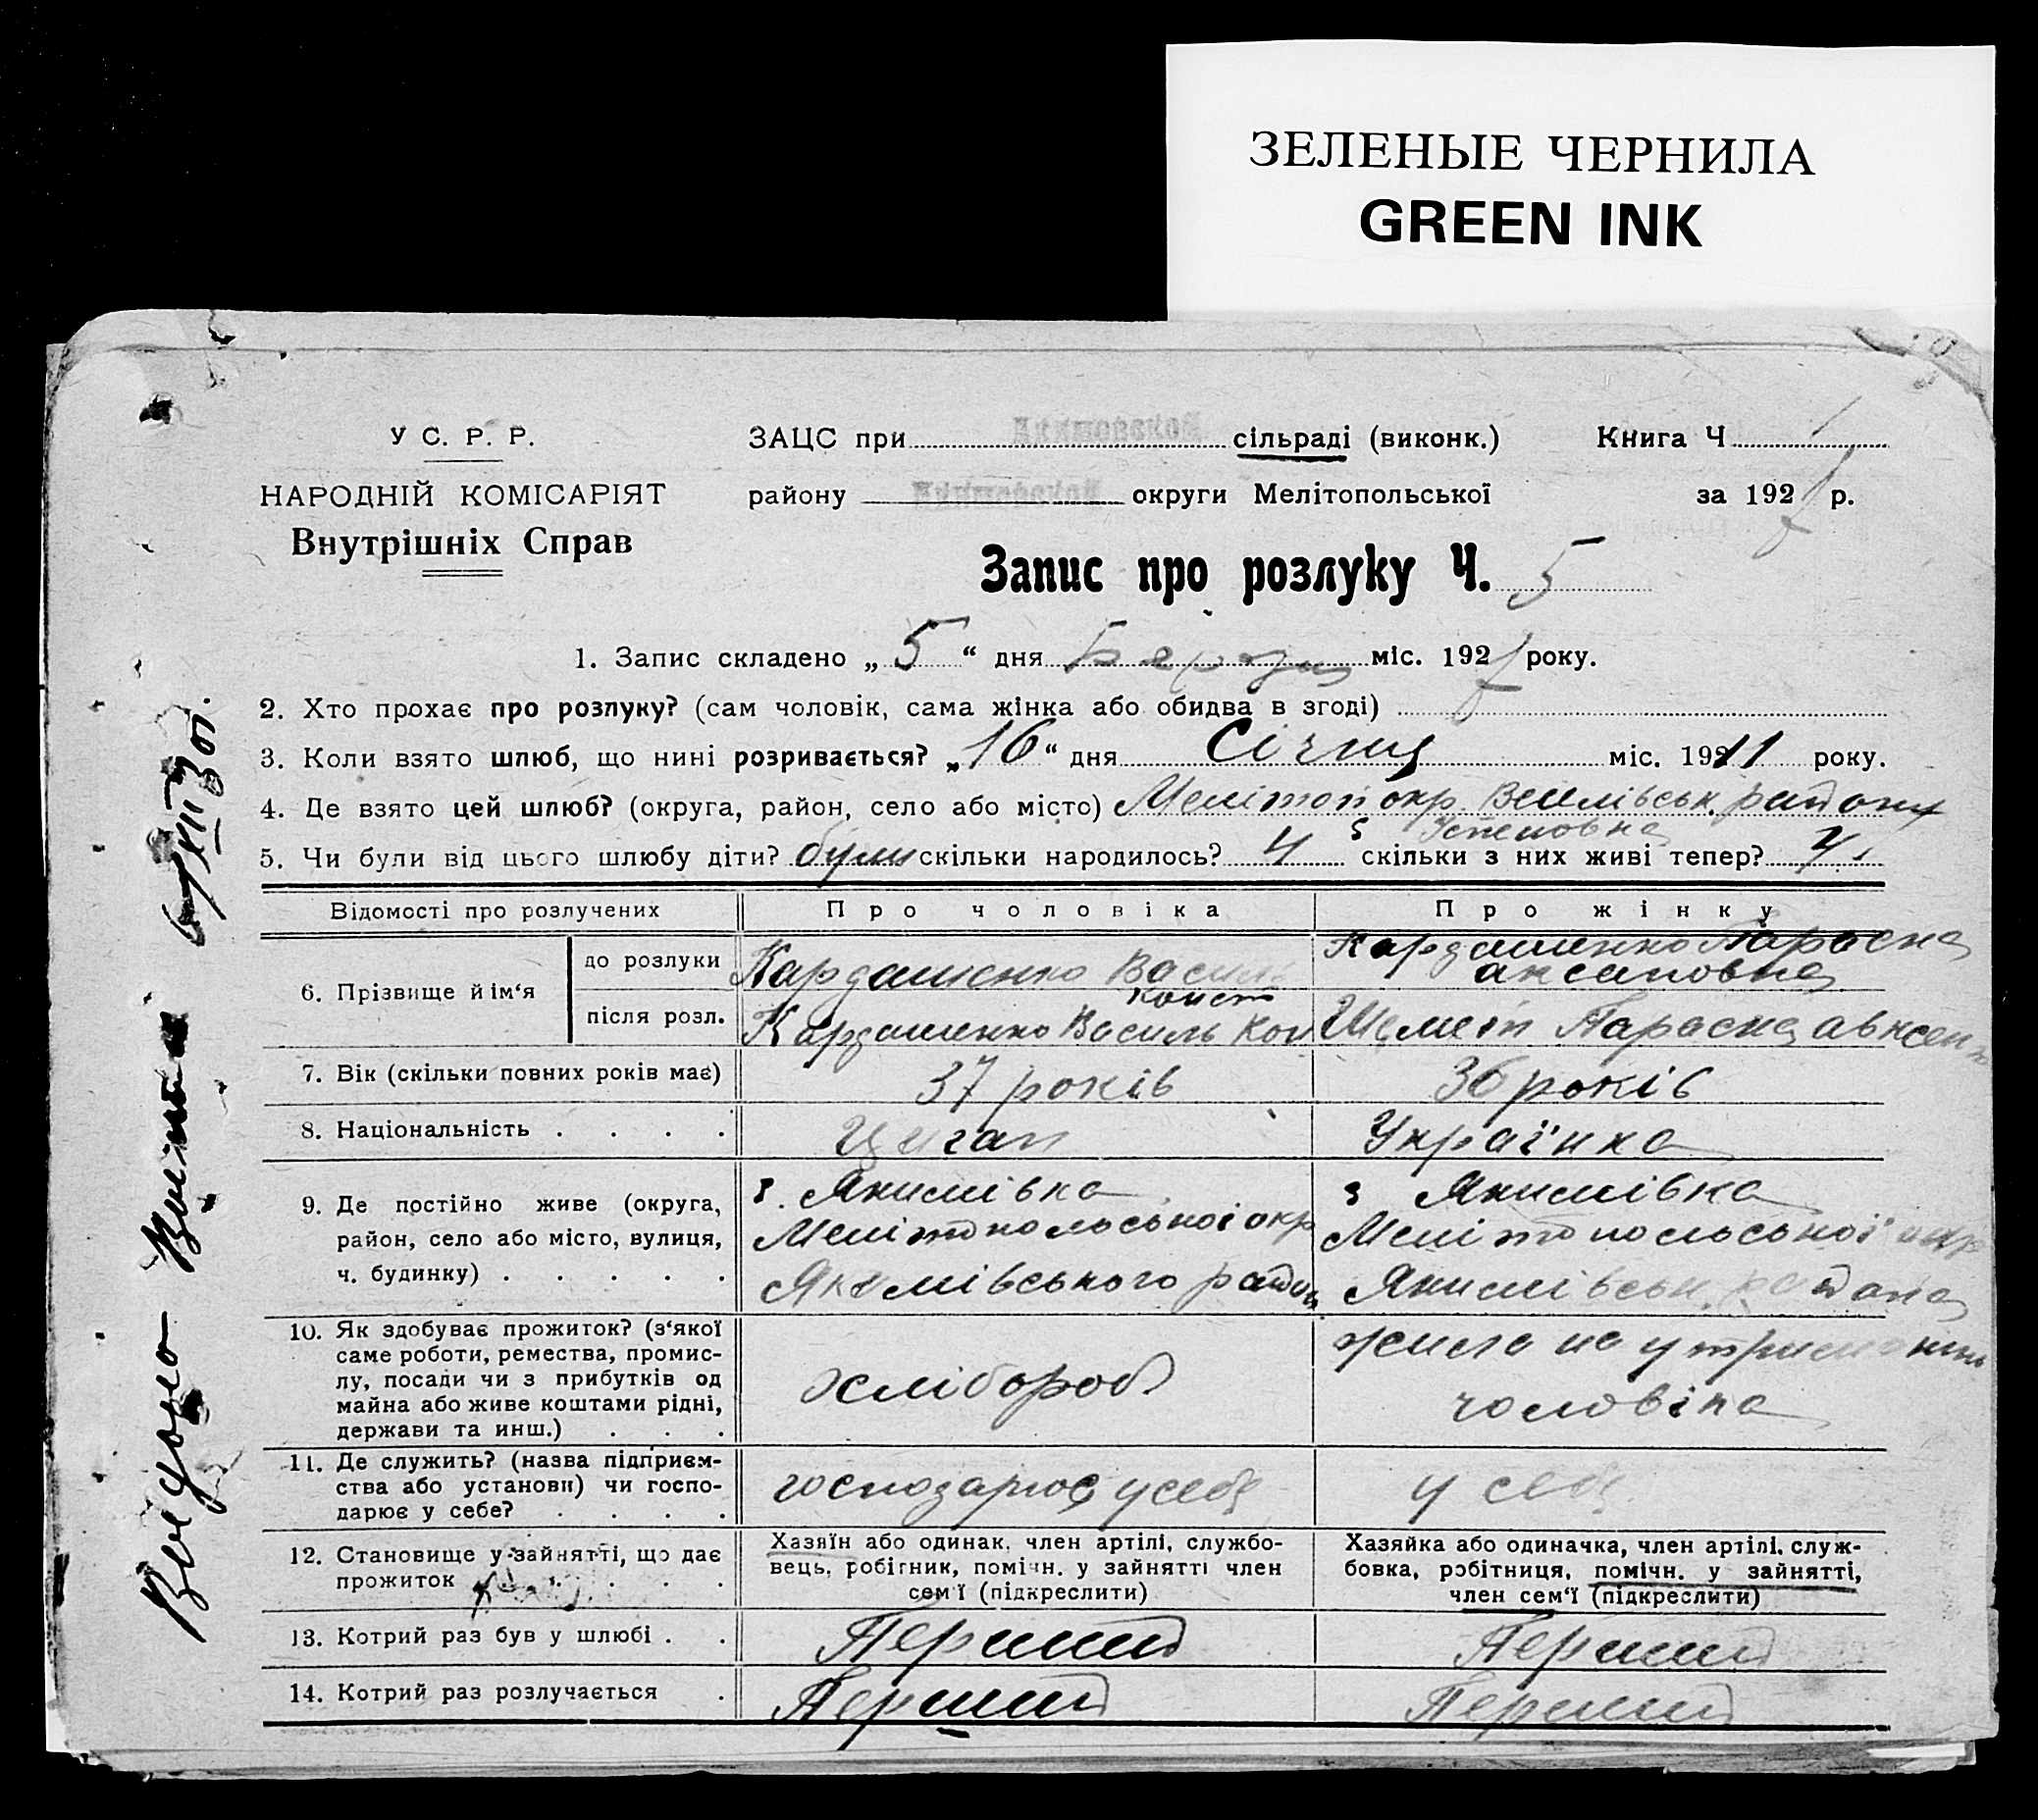 ЗЕЛЕНЫЕ ЧЕРНИЛА
GREEN INK
У С. Р. Р.
НАРОДНІЙ КОМІСАРІЯТ
Внутрішніх Справ
ЗАЦС при сільраді (виконк.) Книга Ч 1
району округи Мелітопольської за 1927 р.
Запис про розлуку Ч. 5
1. Запис складено „5“ дня Березня міс. 1927 року.
2. Хто прохає про розлуку? (сам чоловік, сама жінка або обидва в згоді)
3. Коли взято шлюб, що нині розривається? „16“ дня Січня міс. 1911 року.
4. Де взято цей шлюб? (округа, район, село або місто) Меліτοп окр. району
5. Чи були від цього шлюбу діти? були скільки народилось? 4 скільки з них живі тепер? 4.
Відомості про розлучених
Про чоловіка
Про жінку
6. Прізвище й ім‘я
до розлуки
Кардашенко Василь
Конст
Кардашенко Параска
Аксаповна
після розл.
Кардашенко Василь Кон
Шемет Параска Авксен
7. Вік (скільки повних років має)
37 років
36 років
8. Національність . . . .
Циган
Українка
9. Де постійно живе (округа,
район, село або місто, вулиця,
ч. будинку) . . . . .
с. Якимівка
Мелітопольської окр
Якимівського району
с Якимівка
Мелітопольської окр
Якимівськ. района
10. Як здобуває прожиток? (з‘якої
саме роботи, ремества, промис-
лу, посади чи з прибутків од
майна або живе коштами рідні,
держави та инш.) . . .
хлібороб
жила на утриманні
чоловіка
11. Де служить? (назва підприєм-
ства або установи) чи госпо-
дарює у себе? . . . .
господарює у себе
у себе
12. Становище у зайнятті, що дає
прожиток . . . .
Хазяїн або одинак, член артілі, службо-
вець, робітник, помічн. у зайнятті член
сем‘ї (підкреслити)
Хазяйка або одиначка, член артілі, служ-
бовка, робітниця, помічн. у зайнятті,
член сем‘ї (підкреслити)
13. Котрий раз був у шлюбі . .
Перший
Перший
14. Котрий раз розлучається .
Перший
Перший